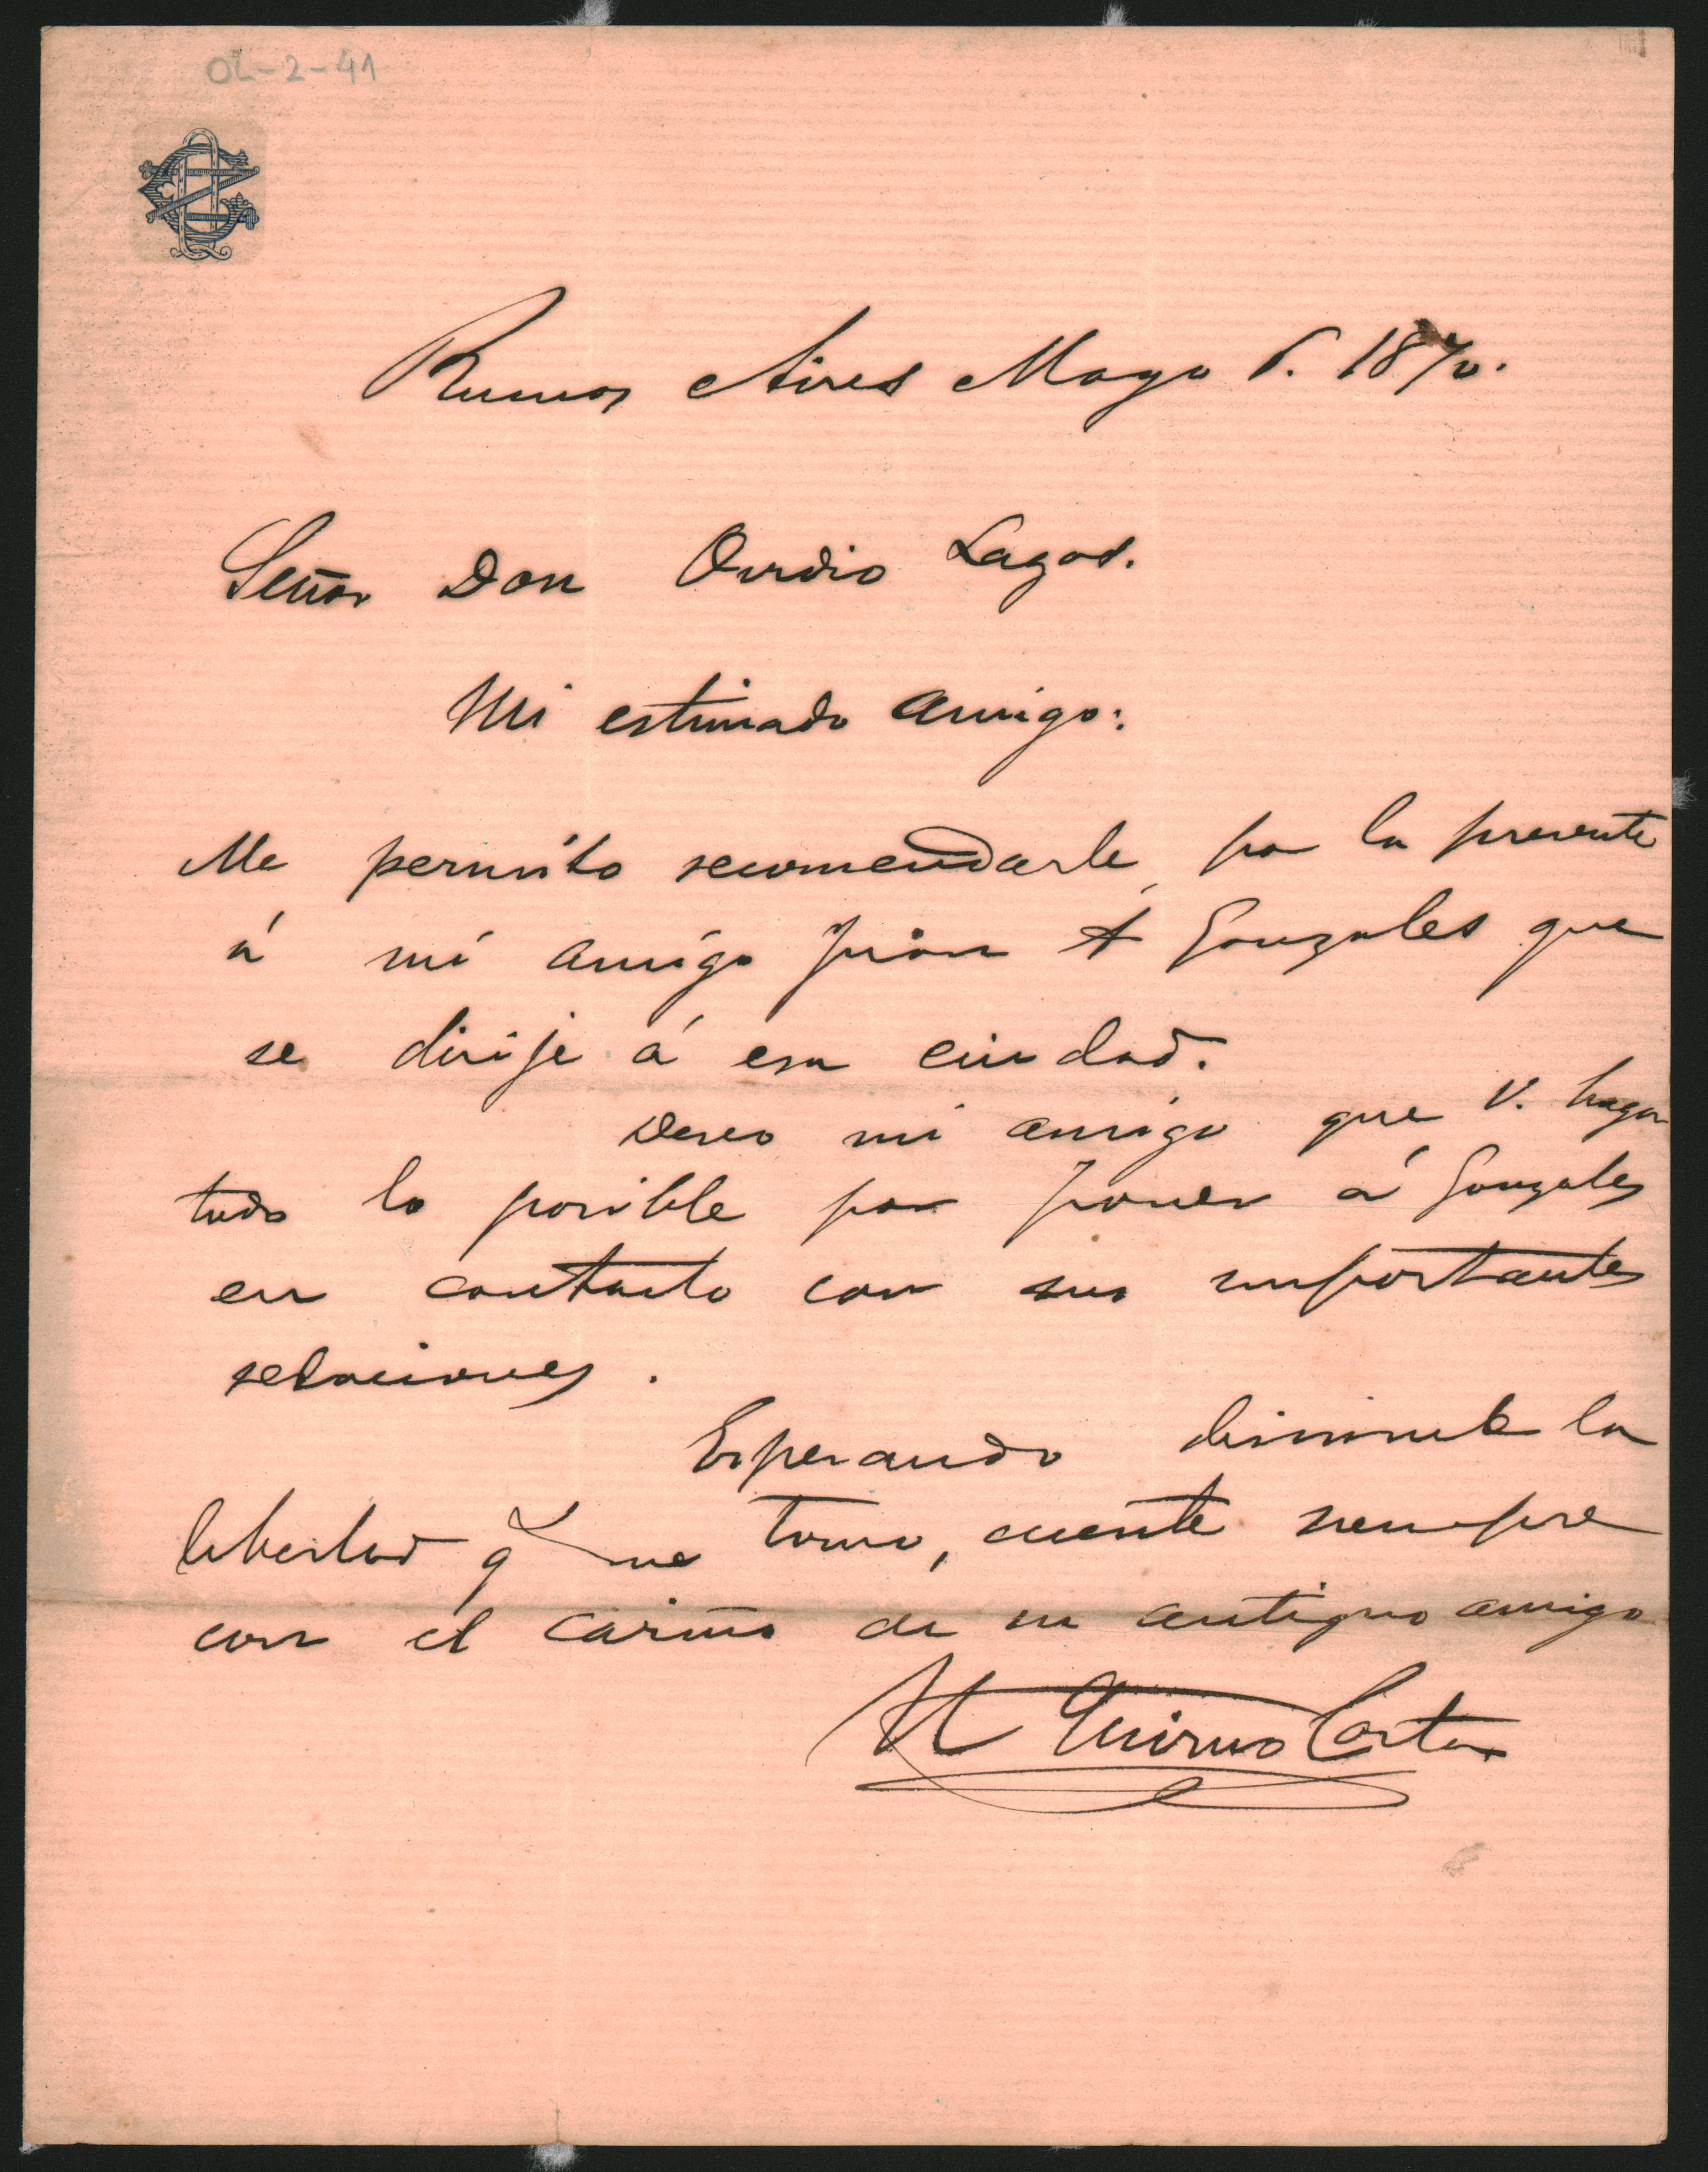 OL-2-41
Buenos Aires Mayo 6. 1870.
Señor Don Ovidio Lagos.
Mi estimado amigo:
Me permito recomendarle, por la presente
á mi amigo Juan A Gonzales que
se dirije á esa ciudad.
Deseo mi amigo que V. haga
todo lo posible por poner á Gonzales
en contacto con sus importantes
relaciones.
Esperando disimule la
libertad q me tomo, cuente siempre
con el cariño de su antiguo amigo
N Quirno Costa